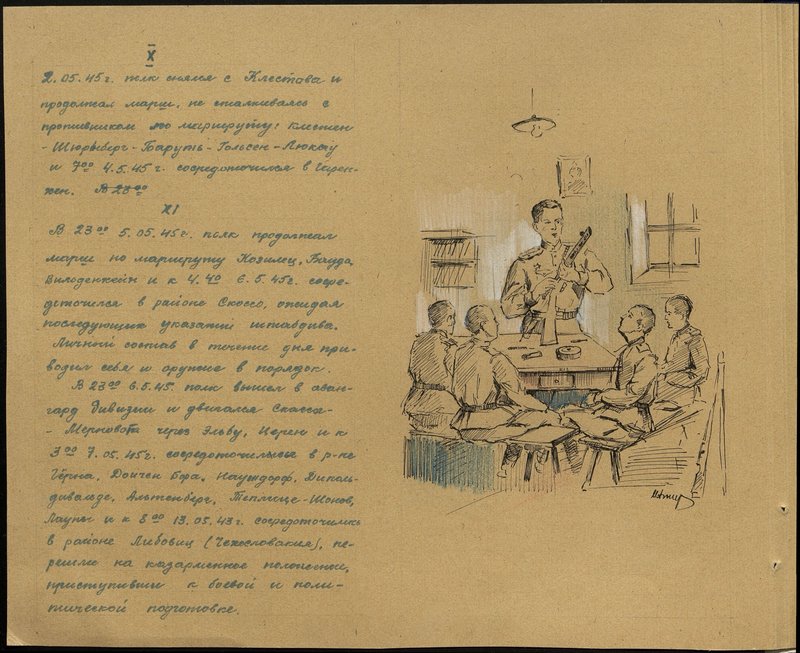 X
2.05.45г. полк снялся с Клестова и
продолжал марш, не сталкиваясь с
противником по маршруту: Клестен
- Шюрьберг - Баруть - Гольсен - Люкау
и 7⁰⁰ 4.5.45г. сосредоточился в
хен. В 23⁰⁰
XI
В 23⁰⁰ 5.05.45г. полк продолжал
марш по маршруту Козилец,
и к 4.40 6.5.45г. сосре-
дточился в районе Скоссо, ожидая
последующих указаний штабдива.
Личный состав в течение дня при-
водил себя и оружие в порядок.
В 23⁰⁰ 6.5.45. полк вышел в аван-
гард дивизии и двигался Скосса-
- через Эльбу, и к
3⁰⁰ 7.05.45г. сосредоточился в р-не
Гёрна, Дойчен Бора, Наундорф, Диполь-
дивальде, Альтенберг, Теплице-Шонов,
Лауны и к 8⁰⁰ 13.05.43г. сосредоточились
в районе Либовиц (Чехословакия), пе-
решли на казарменное положение,
приступивши к боевой и поли-
тической подготовке.